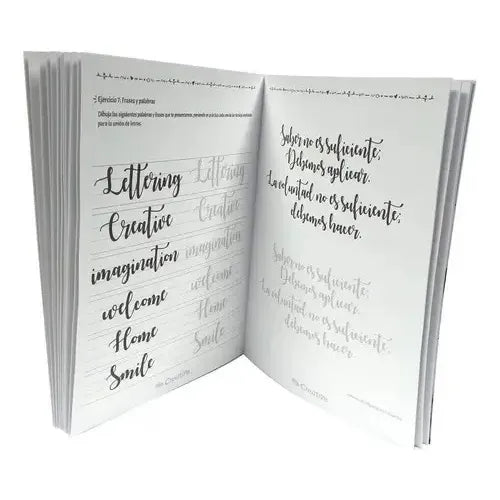 Ejercicio 7: Frases y palabras
Dibuja las siguientes palabras y frases que te presentamos, poniendo en práctica
para la unión de letras.
Lettering Lettering
Creative Creative
imagination imagination
welcome welcome
Home Home
Smile Smile
Saber no es suficiente;
Debemos aplicar.
La voluntad no es suficiente;
debemos hacer.
Saber no es suficiente;
Debemos aplicar.
La voluntad no es suficiente;
debemos hacer.